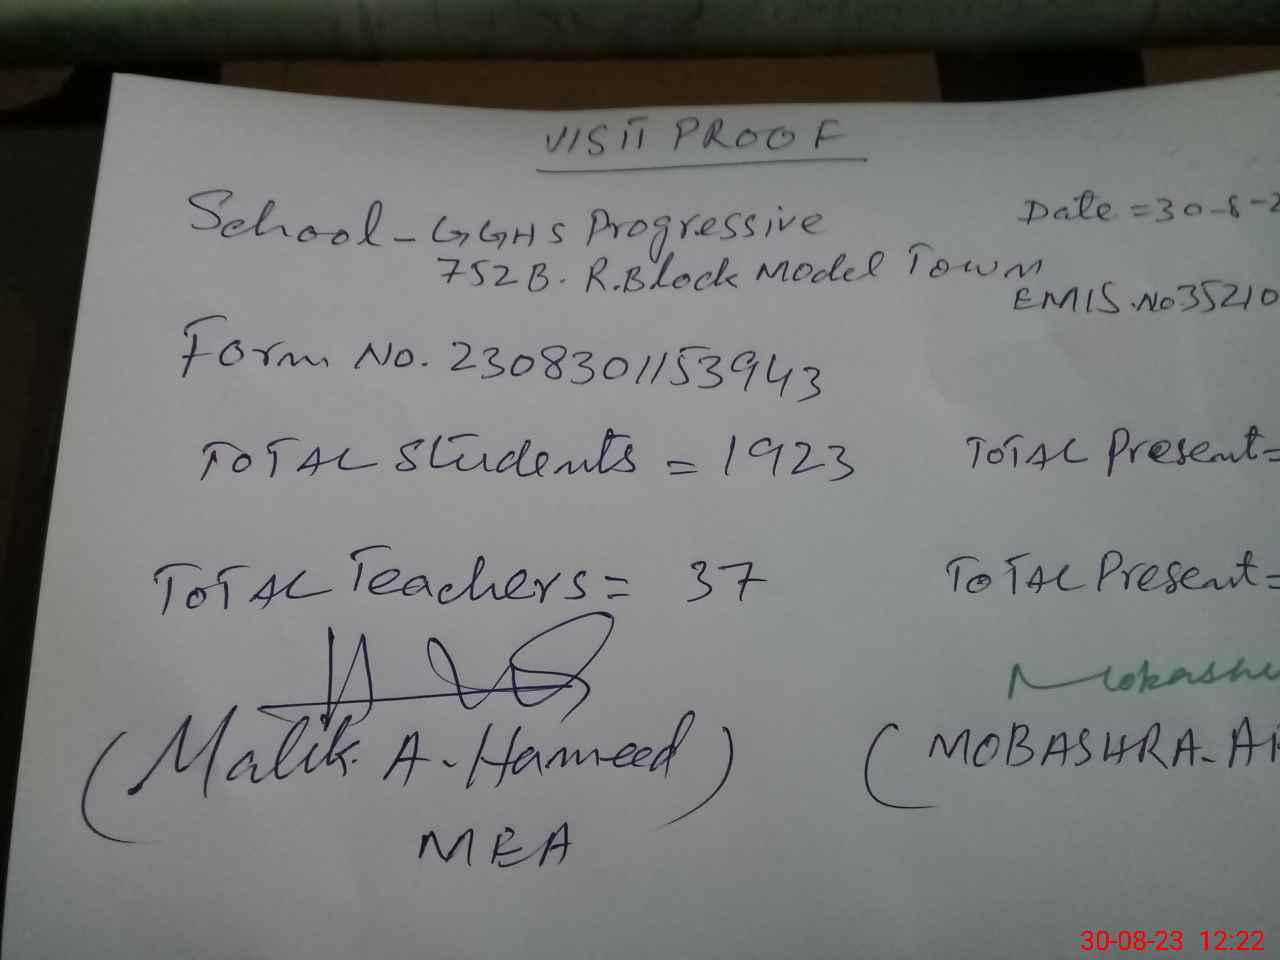 VISIT PROOF
School - GGHS Progressive
Date = 30-8-2
752 B. R. Block Model Town
EMIS. No 35210
Form No. 2308301153943
TOTAL Students = 1923
TOTAL Present =
TOTAL Teachers = 37
TOTAL Present =
Mobash
(Malik. A. Hameed)
(MOBASHRA. A
MEA
30-08-23 12:22